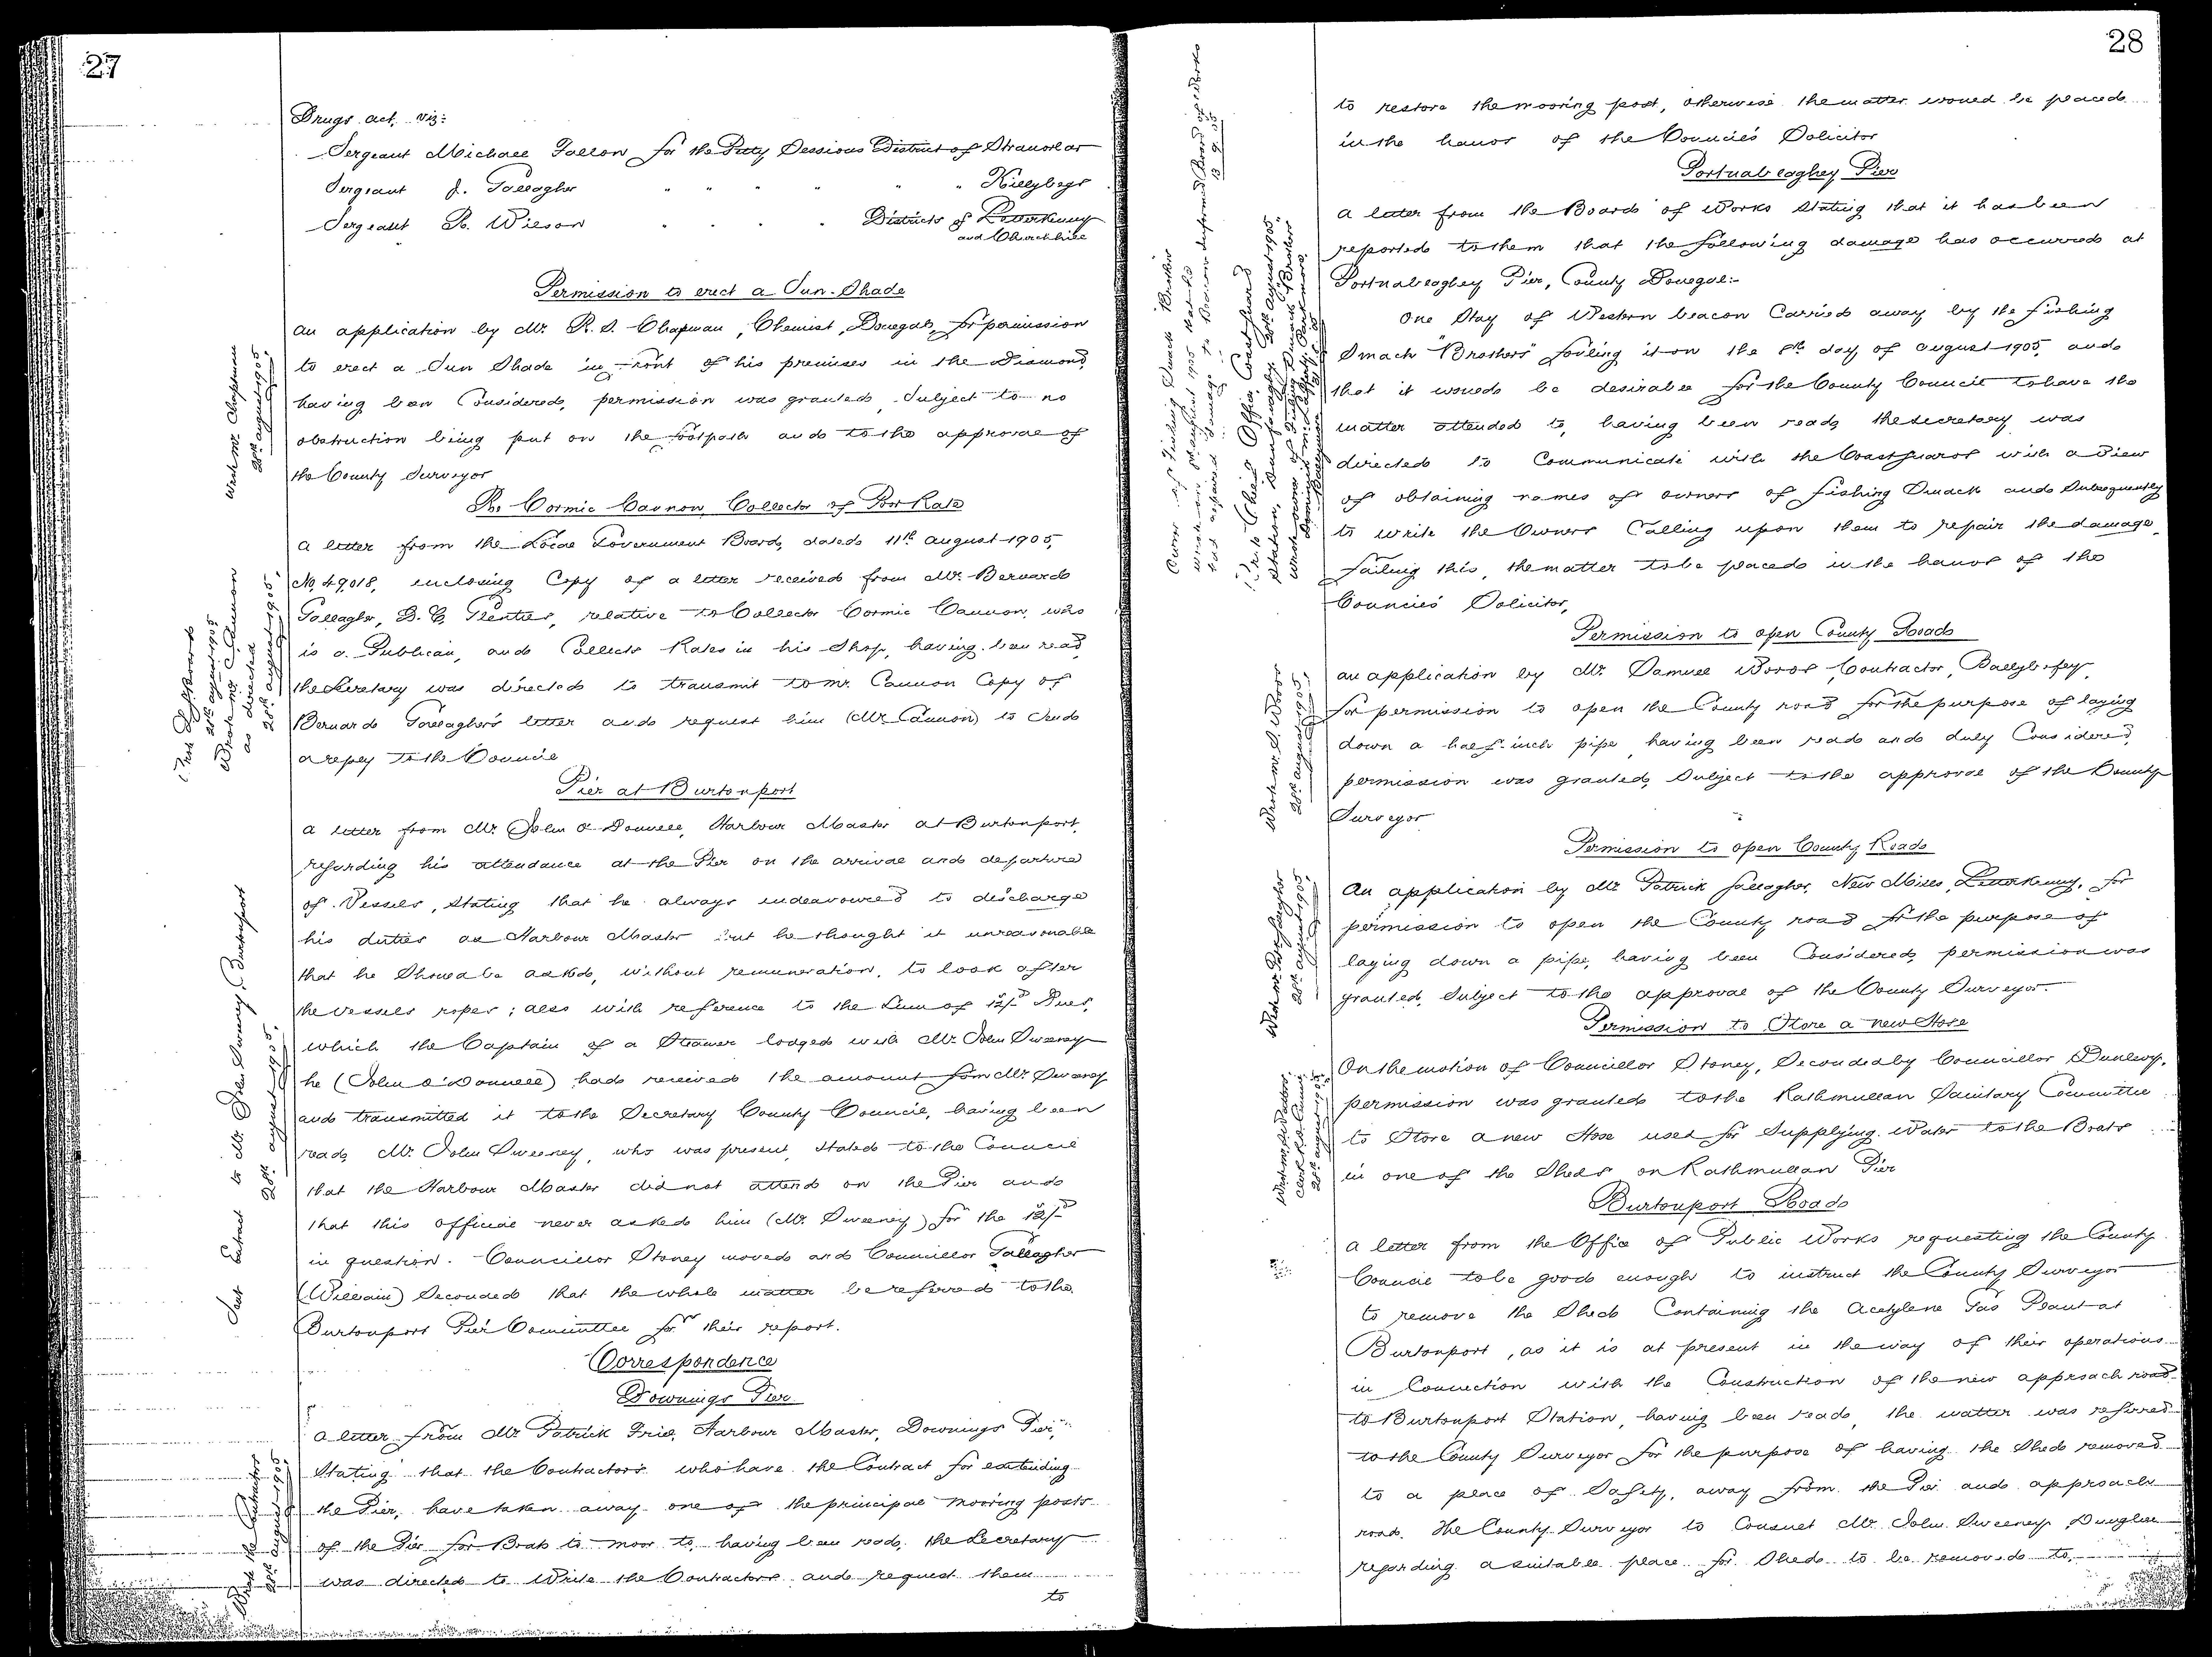 27
Drugs act, viz:
Sergeant Michael Fallon for the Petty Sessions District of Stranorlar
Sergeant J. Gallagher " " " " " " Killybegs
Sergeant R. Wilson " " " " Districts of Letterkenny
and Churchhill
Permission to erect a Sun-Shade
An application by Mr. R. S. Chapman, Chemist, Donegal, for permission
to erect a Sun Shade in front of his premises in the Diamond,
having been Considered, permission was granted, Subject to no
obstruction being put on the footpath and to the approval of
the County Surveyor
Wrote Mr. Chapman
28th August 1905.
Re Cormic Cannon, Collector of Poor Rate
A letter from the Local Government Board, dated 11th August 1905,
No. 49,018, enclosing Copy of a letter received from Mr. Bernard
Gallagher, D. C. Glenties, relative to Collector Cormic Cannon, who
is a Publican, and Collects Rates in his Shop, having been read,
the Secretary was directed to transmit to Mr. Cannon Copy of
Bernard Gallagher's letter and request him (Mr. Cannon) to Send
a reply to the Council
28th August 1905
Wrote Mr. C. Cannon
as directed
28th August 1905.
Pier at Burtonport
A letter from Mr. John O'Donnell, Harbour Master at Burtonport,
regarding his attendance at the Pier on the arrival and departure
of Vessels, Stating that he always endeavoured to discharge
his duties as Harbour Master but he thought it unreasonable
that he Should be asked, without remuneration, to look after
the vessels ropes; also with reference to the Sum of 12/- Dues,
which the Captain of a Steamer lodged with Mr. John Sweeney
he (John O'Donnell) had received the amount from Mr. Sweeney
and transmitted it to the Secretary County Council, having been
read, Mr. John Sweeney, who was present, Stated to the Council
that the Harbour Master did not attend on the Pier and
that this official never asked him (Mr. Sweeney) for the 12/-
in question. Councillor Stoney moved and Councillor Gallagher
(William) Seconded that the whole matter be referred to the
Burtonport Pier Committee for their report.
Sent Extract to Mr. John Sweeney, Burtonport
28th August 1905.
Correspondence
Downings Pier
A letter from Mr. Patrick Friel, Harbour Master, Downings Pier,
Stating that the Contractors who have the Contract for extending
the Pier, have taken away one of the principal mooring posts
of the Pier for Boats to moor to, having been read, the Secretary
was directed to Write the Contractors and request them
to
Wrote the Contractors
28th August 1905.
28
to restore the mooring post, otherwise the matter would be placed
in the hands of the Council's Solicitor
Portnablaghey Pier
A letter from the Board of Works Stating that it has been
reported to them that the following damage has occurred at
Portnablaghey Pier, County Donegal:-
One Stay of Western beacon Carried away by the fishing
Smack "Brothers" fouling it on the 8th day of August 1905, and
that it would be desirable for the County Council to have the
matter attended to, having been read, the Secretary was
directed to Communicate with the Coastguard with a View
of obtaining names of owners of fishing Smack and Subsequently
to write the Owners Calling upon them to repair the damage,
failing this, the matter to be placed in the hands of the
Council's Solicitor,
Owner of Fishing Smack Brothers
had repaired damage to Beacon. Informed Board of Works
13 9 05
Wrote Chief Officer, Coastguard
Station, Dunfanaghy 28th August 1905.
Permission to open County Road
An application by Mr. Samuel Wood, Contractor, Ballybofey,
for permission to open the County road for the purpose of laying
down a half-inch pipe, having been read and duly Considered,
permission was granted, Subject to the approval of the County
Surveyor
Wrote Mr. S. Wood
28th August 1905.
Permission to open County Road
An application by Mr. Patrick Gallagher, New Mills, Letterkenny, for
permission to open the County road for the purpose of
laying down a pipe, having been Considered, permission was
granted, Subject to the approval of the County Surveyor.
Wrote Mr. P. Gallagher
28th August 1905.
Permission to Store a new Hose
On the motion of Councillor Stoney, Seconded by Councillor Dunlevy,
permission was granted to the Rathmullan Sanitary Committee
to Store a new Hose used for Supplying Water to the Boats
in one of the Sheds on Rathmullan Pier
28th August 1905.
Burtonport Road
A letter from the Office of Public Works requesting the County
Council to be good enough to instruct the County Surveyor
to remove the Shed Containing the Acetylene Gas Plant at
Burtonport, as it is at present in the way of their operations
in Connection with the Construction of the new approach road
to Burtonport Station, having been read, the matter was referred
to the County Surveyor for the purpose of having the Shed removed
to a place of Safety, away from the Pier and approach
road. The County Surveyor to Consult Mr. John Sweeney, Dungloe
regarding a suitable place for Shed to be removed to.